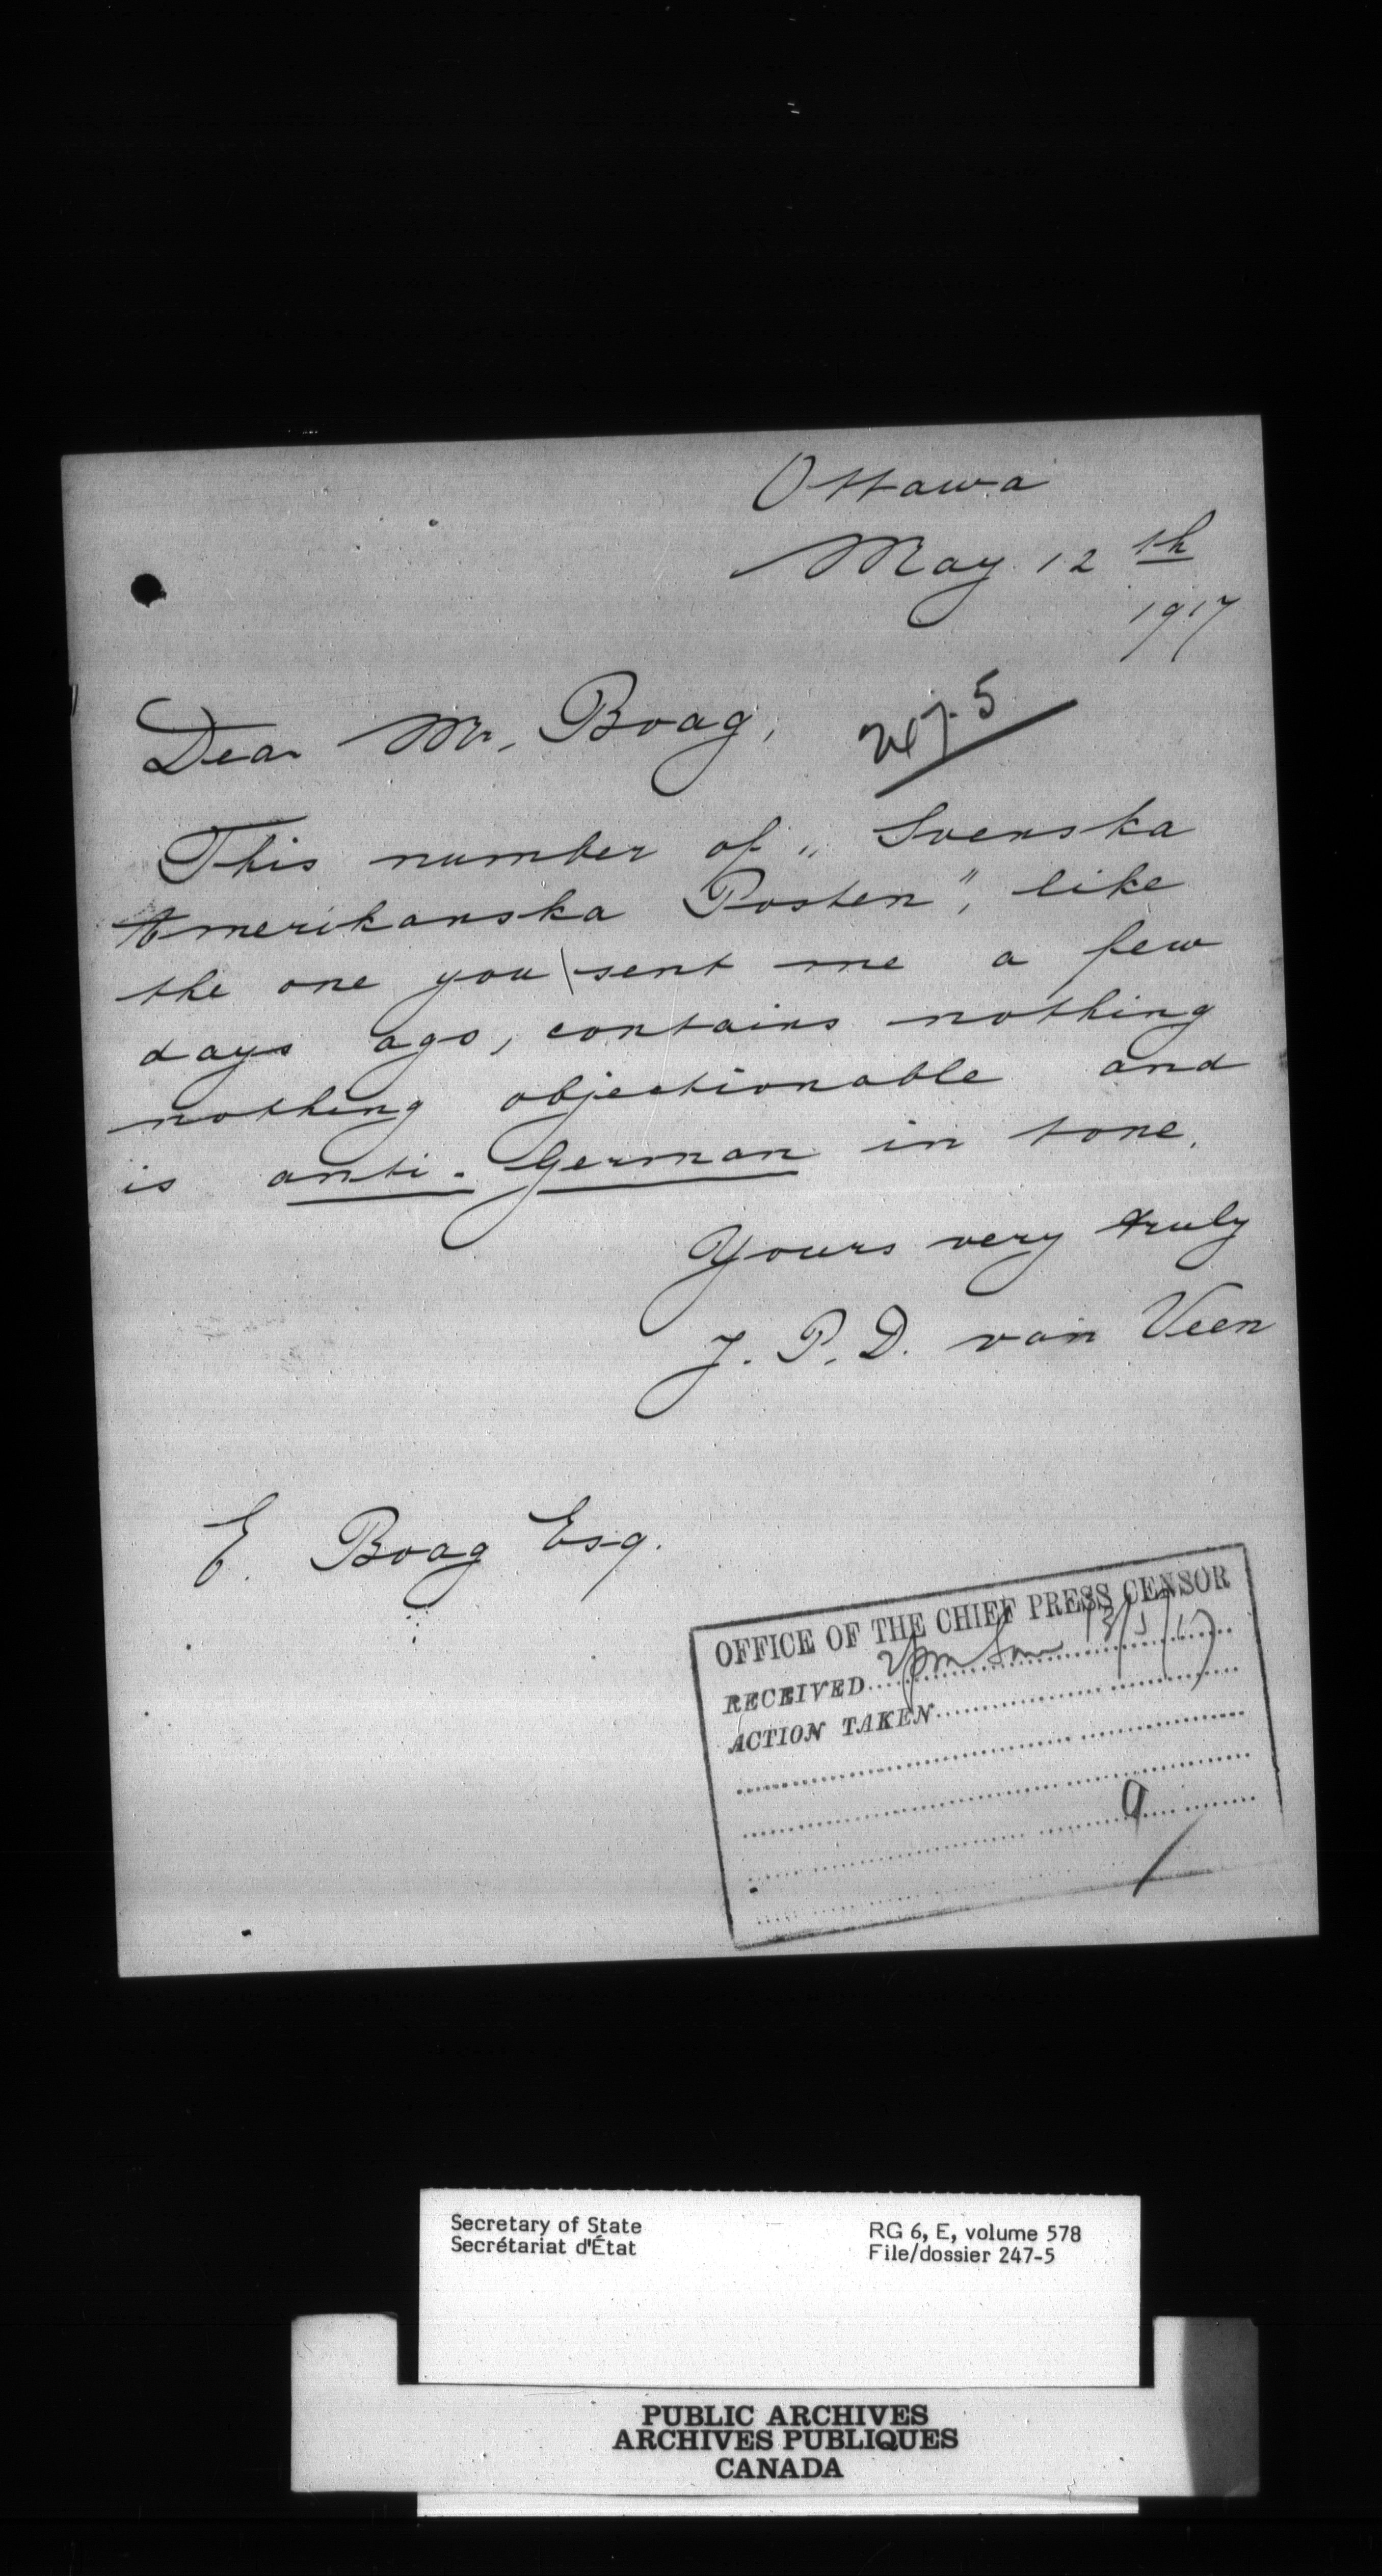 Ottawa
May 12th
1917
247-5
Dear Mr. Boag,
This number of „Svenska
Amerikanska Posten", like
the one you sent me a few
days ago, contains nothing
nothing objectionable and
is anti-German in tone.
Yours very truly
J. P. D. van Veen
E. Boag Esq.
OFFICE OF THE CHIEF PRESS CENSOR
RECEIVED 2pm 13/5/17
ACTION TAKEN
Secretary of State
Secrétariat d'État
RG 6, E, volume 578
File/dossier 247-5
PUBLIC ARCHIVES
ARCHIVES PUBLIQUES
CANADA